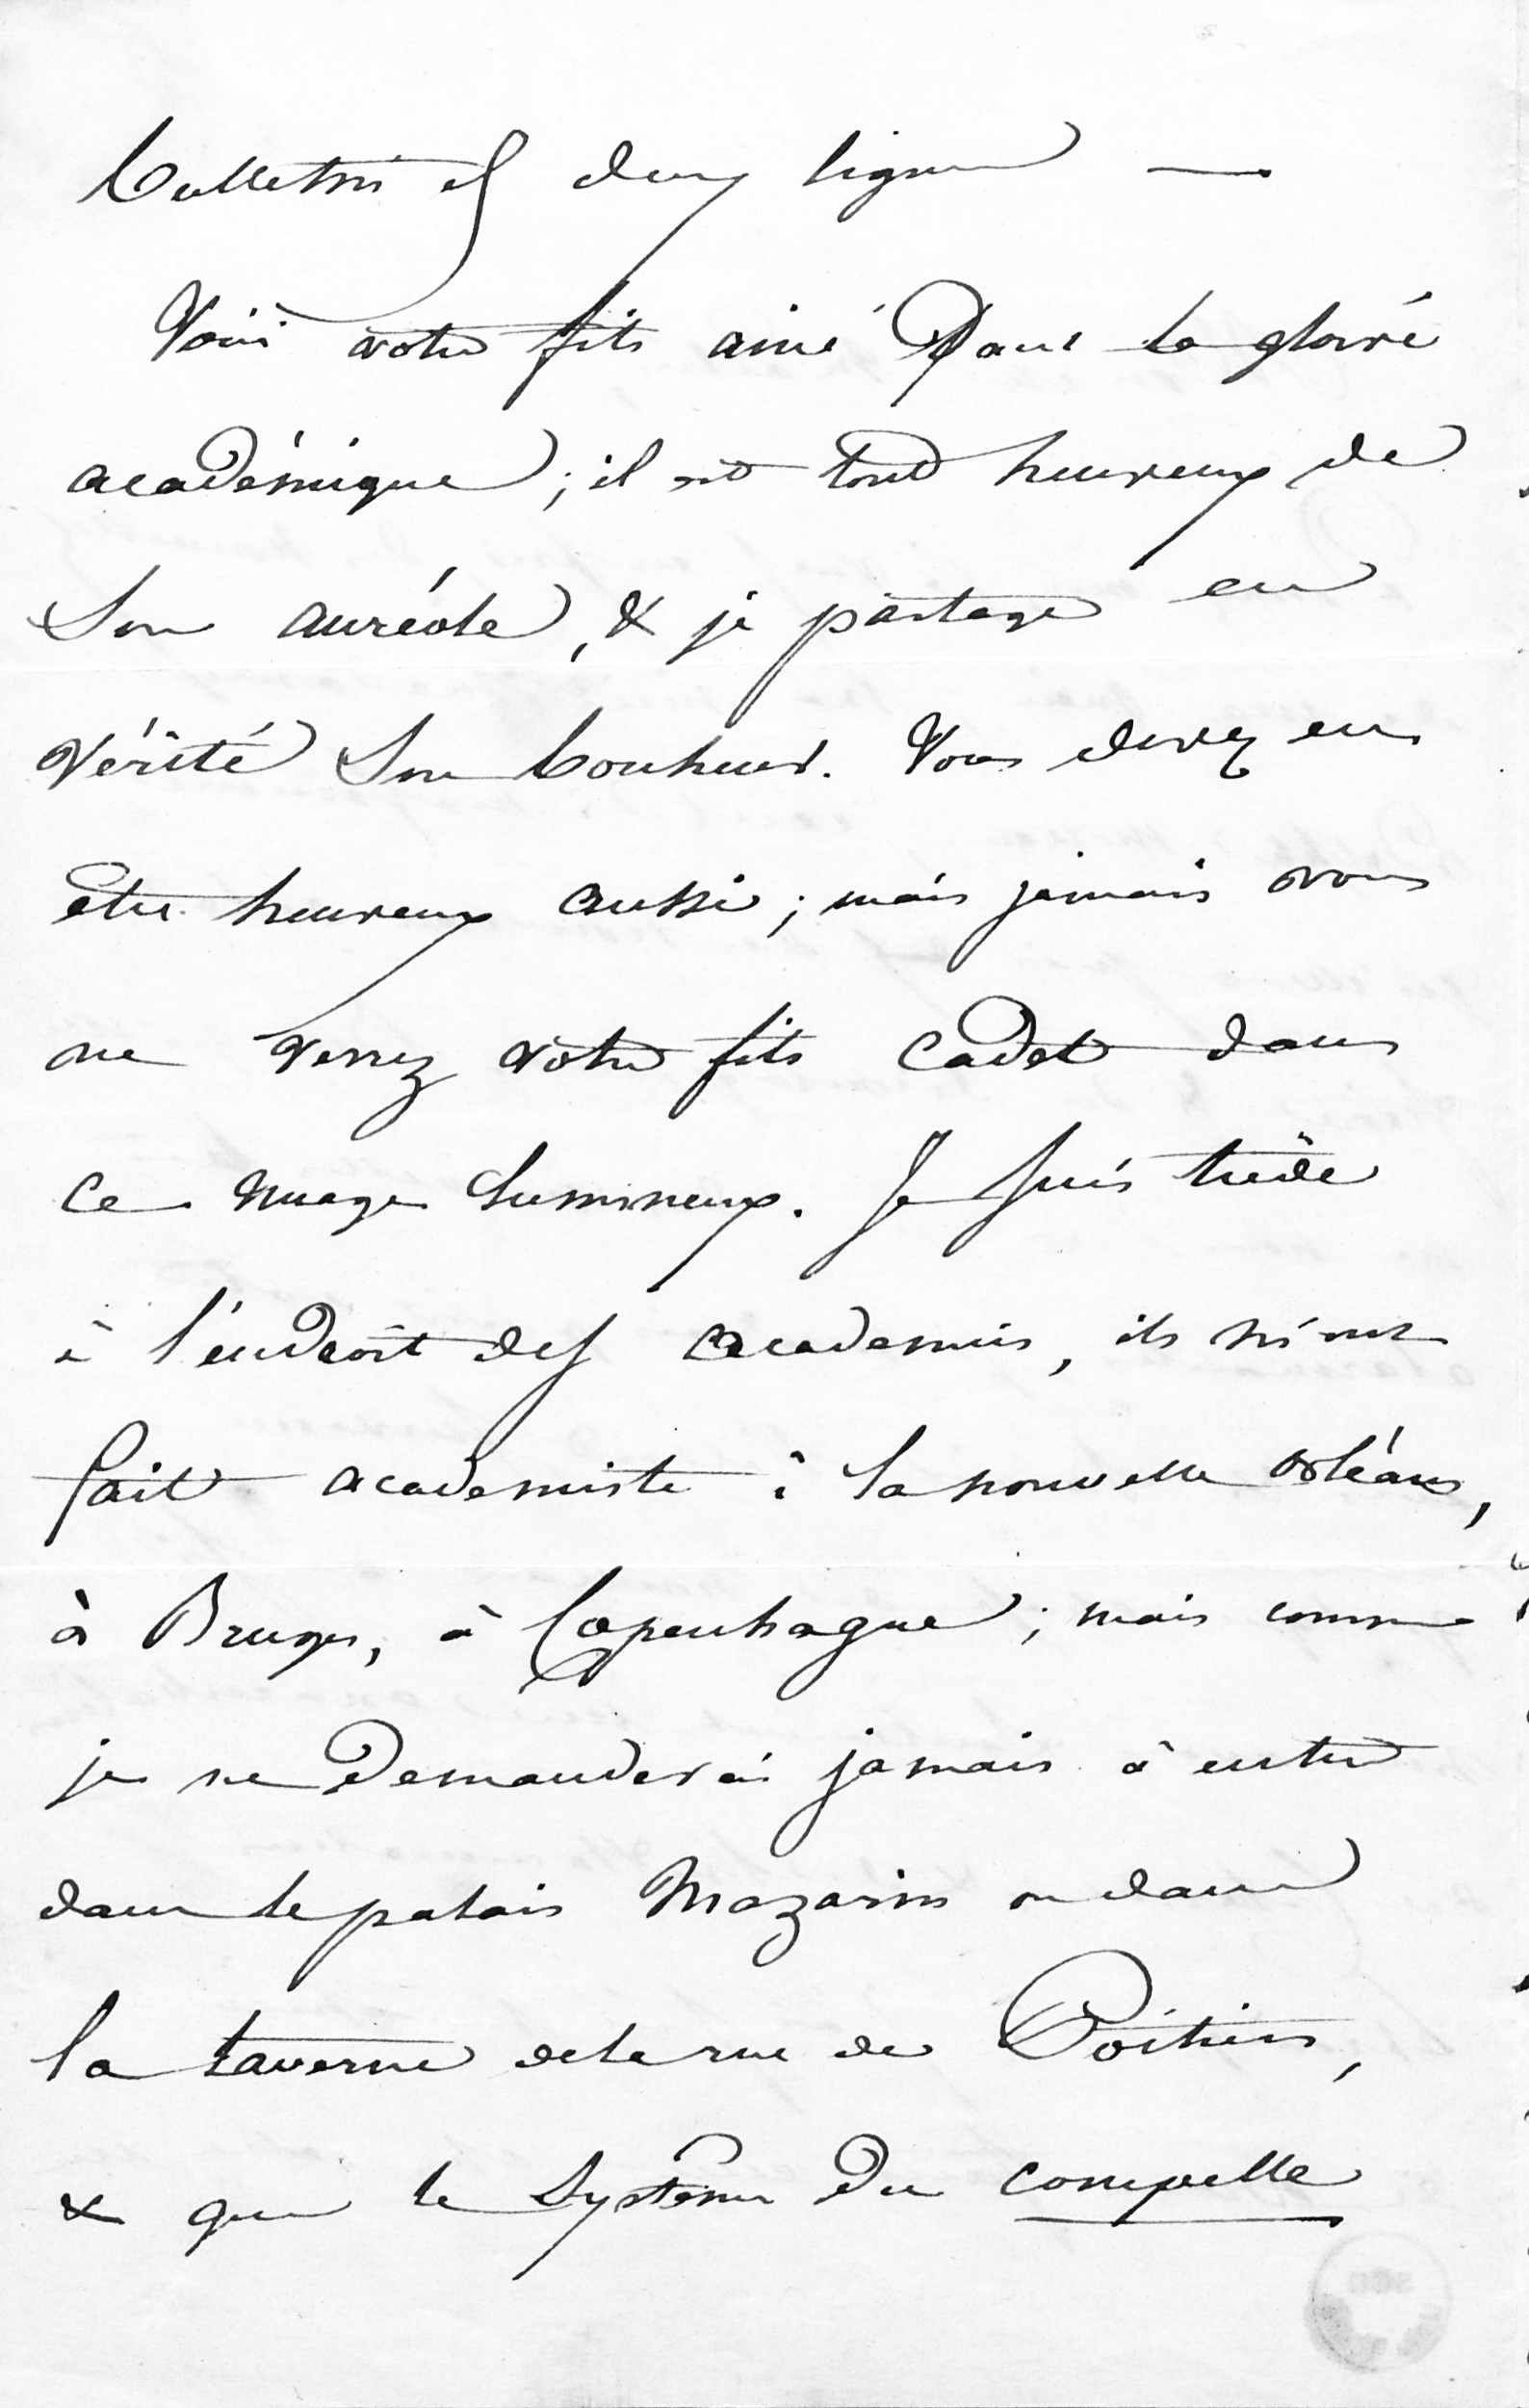 bulletin et deux lignes —
Voici votre fils ainé Dans la gloire
académique ; il est tout heureux de
son auréole, & je partage en
vérité son bonheur. Vous devez en
être heureux aussi ; mais jamais vous
ne verrez votre fils cadet dans
ce nuage lumineux. Je suis tiède
à l'endroit des academies, ils m'ont
fait academiste à la nouvelle orléans,
à Bruges, à Copenhague ; mais comme
je ne Demanderai jamais à entrer
dans le palais Mazarin ou dans
la taverne de la rue de Poitiers,
& que le système du compelle